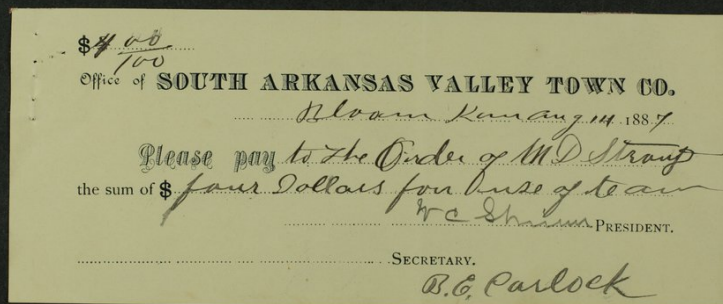 $4 00/100
Office of SOUTH ARKANSAS VALLEY TOWN CO.
Bloom Kan Aug 14 1887
Please pay to the Order of M D Strong
the sum of $ four Dollars for use of team
W C PRESIDENT.
SECRETARY.
B.E. Carlock